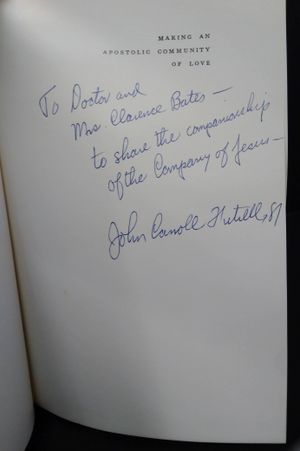 MAKING AN
APOSTOLIC COMMUNITY
OF LOVE
To Doctor and
Mrs. Clarence Bates —
to share the companionship
of the Company of Jesus —
John Carroll Futrell, SJ